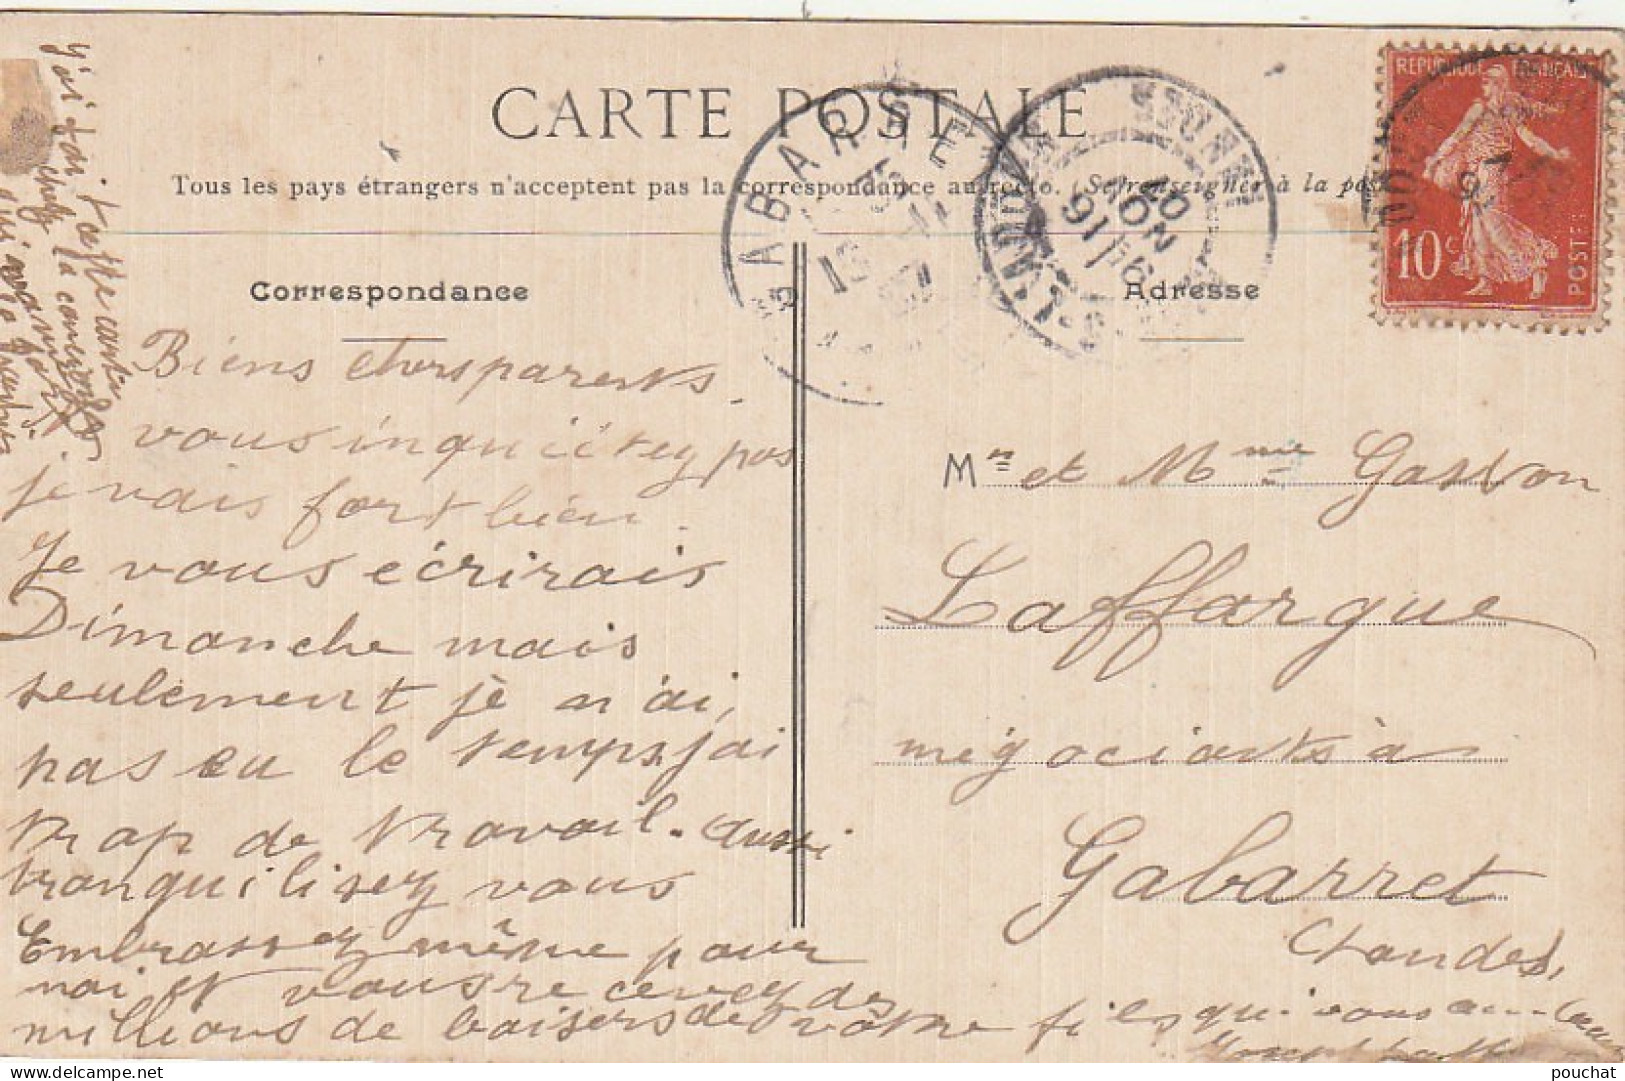 CARTE POSTALE
Tous les pays étrangers n'acceptent pas la correspondance au recto. (Se renseigner à la pos
REPUBLIQUE FRANÇAISE
10 c
POSTES
GABARRET
Correspondance
Adresse
J'ai fai te carte
chez la
Biens chers parents
vous inquiétez pas
je vais fort bien.
Je vous écrirais
Dimanche mais
seulement je n'ai,
pas eu le temps, j'ai
trop de travail. aussi
tranquilisez vous
Embrassez même pour
moi et vous recevez des
millions de baisers de votre fils qui vous
Mr et Mme Gaston
Laffargue
négociants à
Gabarret
Landes,
delcampe.net
pouchat